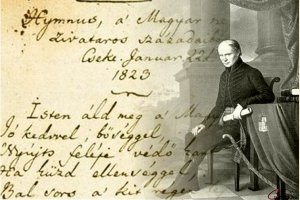 Hymnus, a' Magyar ne
zivataros századaib
Cseke Januar 22d
1823
Isten áld meg a' Mag
Jó kedvvel, bőséggel
Nyújts feléje védő kar
Ha küzd ellenséggel
Bal sors a' kit régen